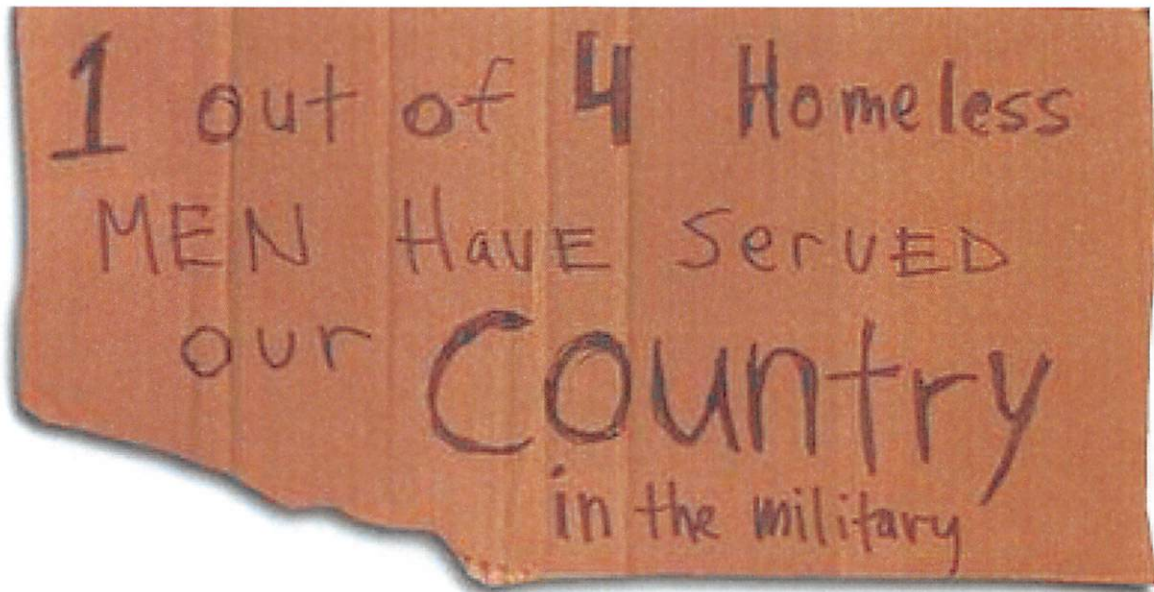 1 out of 4 Homeless
MEN HavE SerVED
our Country
in the military